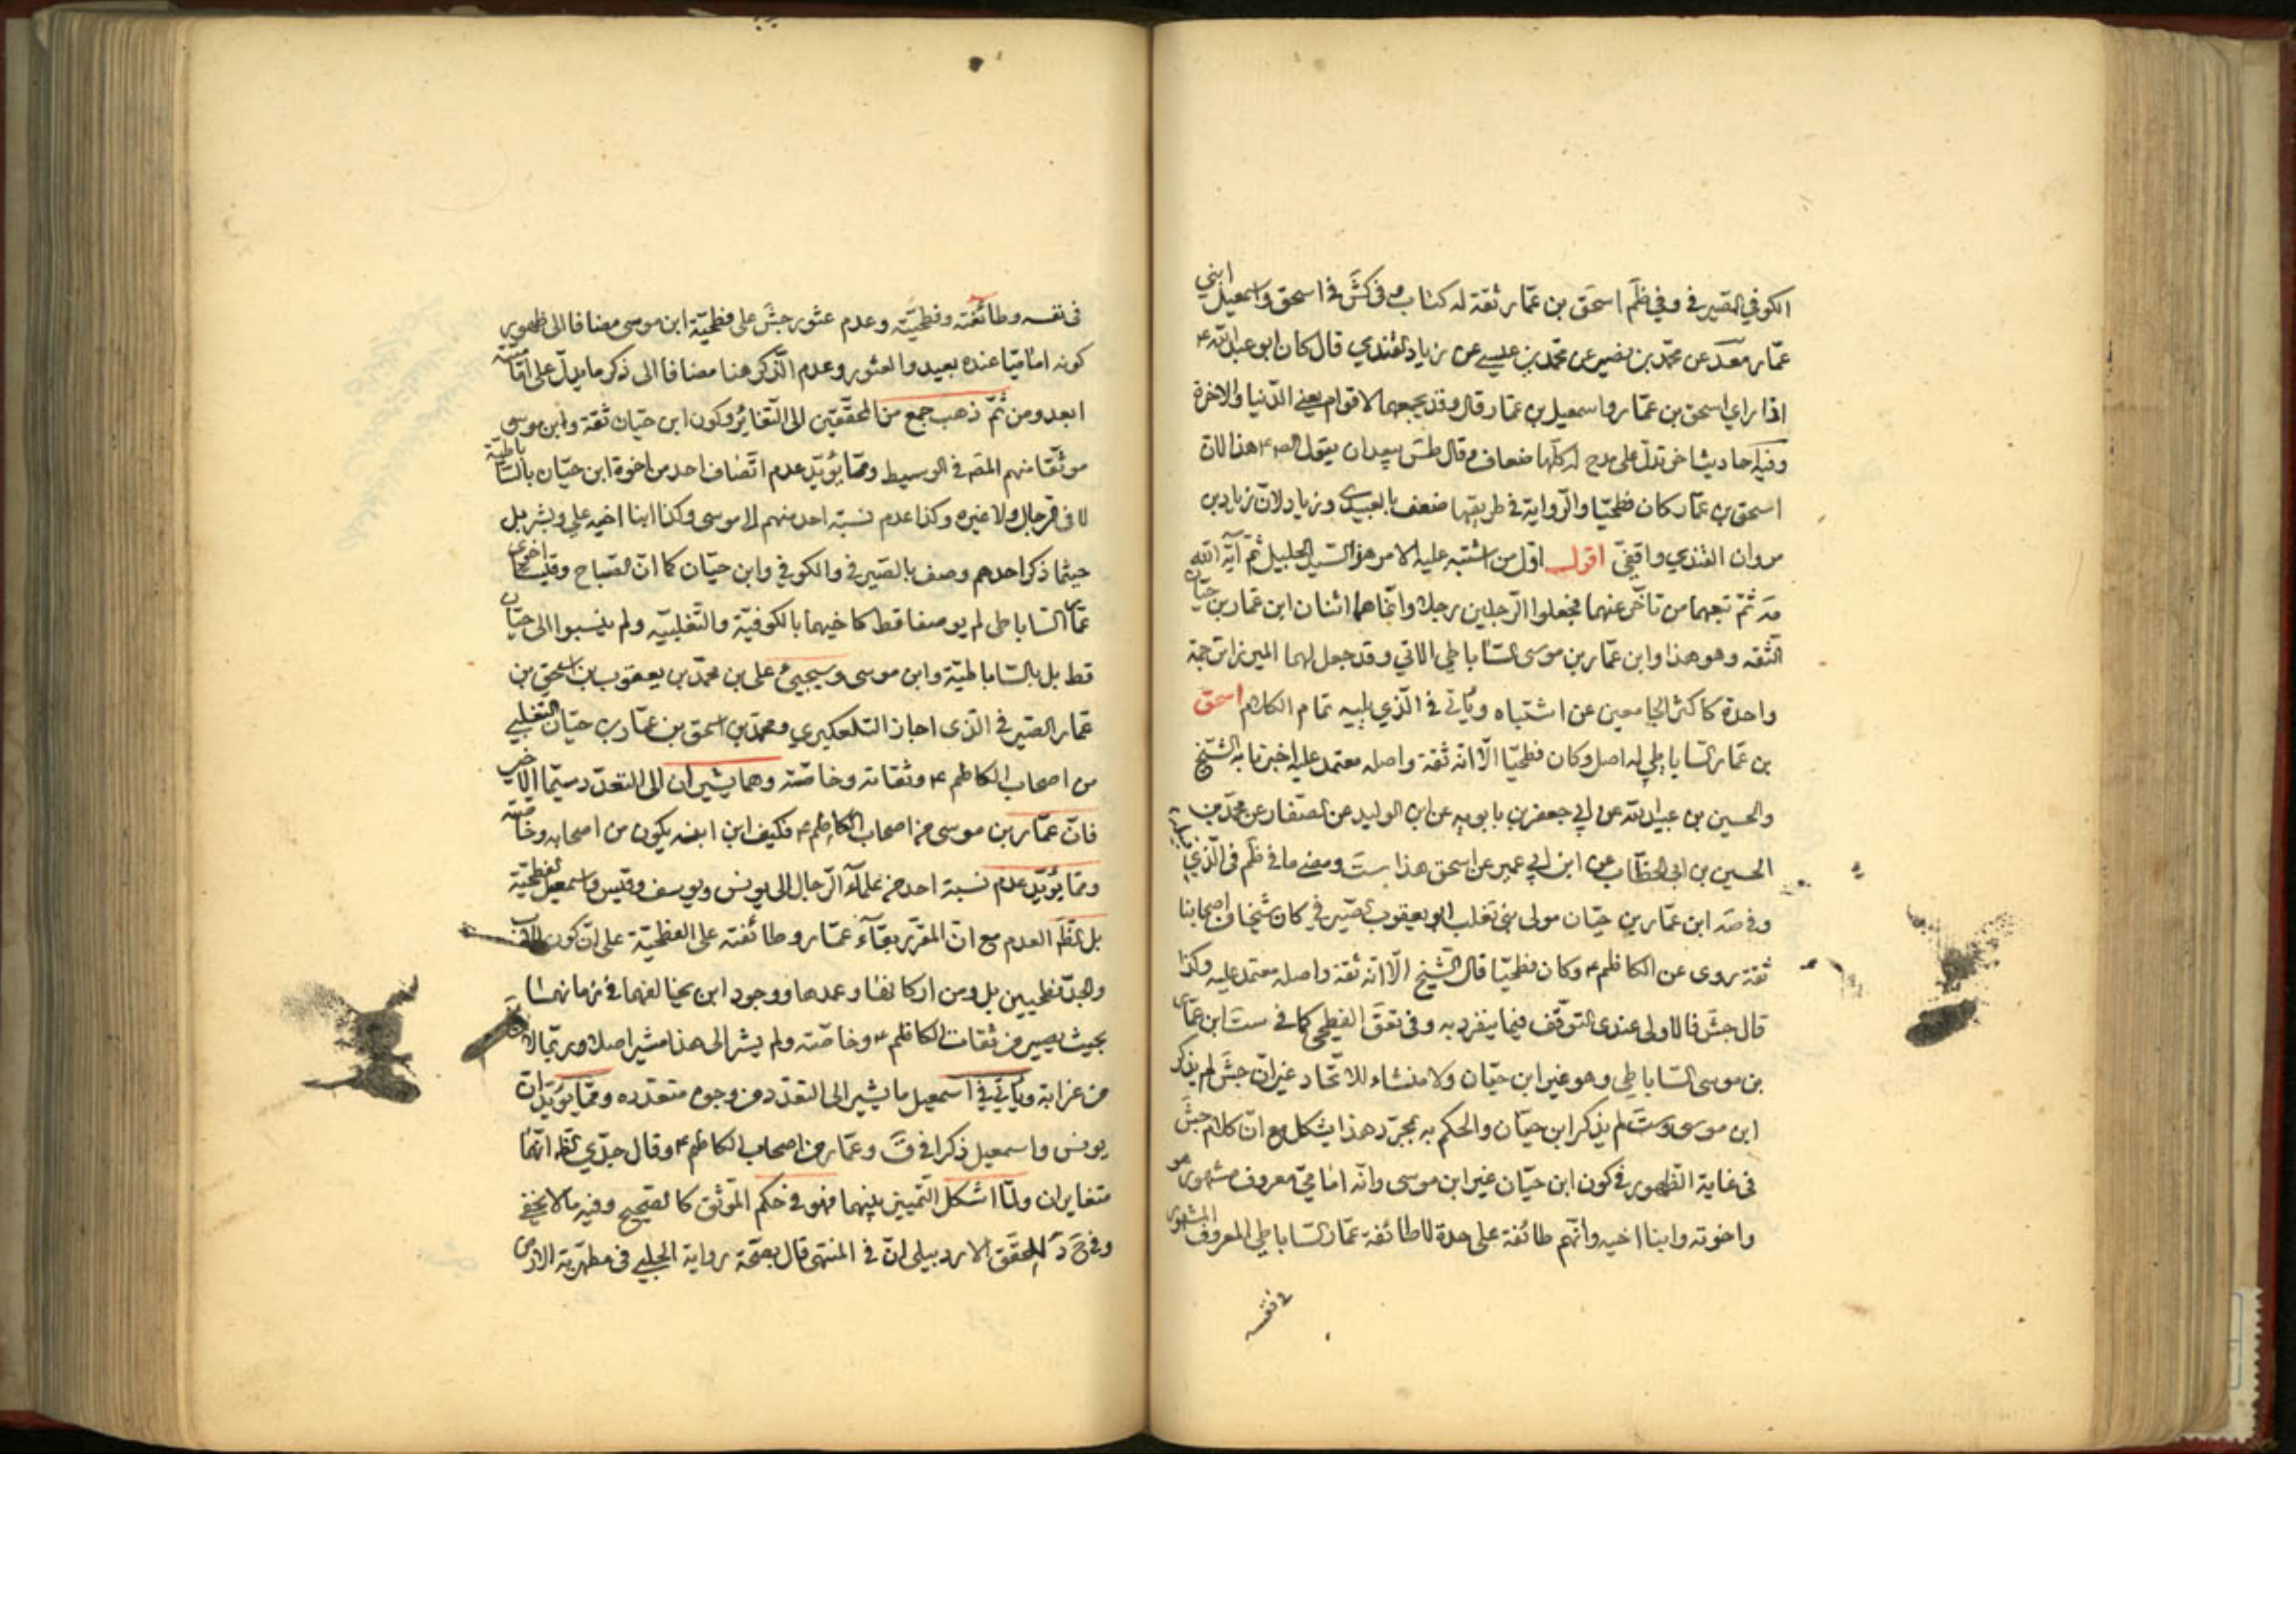 الكوفي الصيرفي وفي ظم اسحق بن عمار ثقة له كتاب وفي كش في اسحق واسمعيل ابني
عمار معد عن محمد بن نصير عن محمد بن عيسى عن زياد القندي قال كان ابو عبد الله ع
اذا راي اسحق بن عمار واسمعيل بن عمار قال وقد يجمعهما لاقوام يعني الدنيا والاخرة
وفيه احاديث اخر تدل على مدح له كلها ضعاف وقال طس يبعد ان يقول الص ع هذا لان
اسحق بن عمار كان فطحيا والرواية في طريقها ضعف بالعبيدي وزياد لان زياد بن
مروان القندي واقفي اقول اول من اشتبه عليه الامر هو السيد الجليل ثم آية الله
مه ثم تبعهما من تاخر عنهما فجعلوا الرجلين رجلا وانما هما اثنان ابن عمار بن حيان
الثقه وهو هذا وابن عمار بن موسى الساباطي الاتي وقد جعل لهما الميرزا ترجمة
واحدة كاكثر الجامعين عن اشتباه وياتي في الذي يليه تمام الكلام اسحق
بن عمار الساباطي له اصل وكان فطحيا الا انه ثقة واصله معتمد عليه اخبرنا به الشيخ
والحسين بن عبيد الله عن ابي جعفر بن بابويه عن ابن الوليد عن الصفار عن محمد بن
الحسين بن ابي الخطاب عن ابن ابي عمير عن اسحق هذا ست ومضى ما في ظم في الذي قبيله
وفي صه ابن عمار بن حيان مولى بني تغلب ابو يعقوب الصيرفي كان شيخا في اصحابنا
ثقة روى عن الكاظم ع وكان فطحيا قال الشيخ الا انه ثقة واصله معتمد عليه وكذا
قال جش فالاولى عندي التوقف فيما ينفرد به وفي تعق الفطحي كما في ست ابن عمار
بن موسى الساباطي وهو غير ابن حيان ولا منشاء للاتحاد غير ان جش لم يذكر
ابن موسى وست لم يذكر ابن حيان والحكم به بمجرد هذا يشكل مع ان كلام جش
في غاية الظهور في كون ابن حيان غير ابن موسى وانه امامي معروف مشهور هو
واخوته وابنا اخيه وانهم طائفة على حدة لا طائفة عمار الساباطي المعروف المشهور
في نفسه
في نفسه وطائفته وفطحيته وعدم عثور جش على فطحية ابن موسى مضافا الى ظهور
كونه اماميا عنده بعيد والعثور وعدم الذكر هنا مضافا الى ذكر ما يدل على اماميته
ابعد ومن ثم ذهب جمع من المحققين الى التغاير وكون ابن حيان ثقة وابن موسى
موثقا منهم المصه في الوسيط ومما يؤيد عدم اتصاف احد من اخوة ابن حيان بالساباطية
لا في الرجال ولا غيره وكذا عدم نسبة احد منهم الا موسى وكذا ابنا اخيه علي وبشر بل
حيثما ذكر احدهم وصف بالصيرفي والكوفي وابن حيان كما ان الصباح وقيسا اخوي
عمار الساباطي لم يوصفا قط كاخيهما بالكوفية والتغلبيه ولم ينسبوا الى حيان
قط بل بالساباطية وابن موسى وسيجيئ علي بن محمد بن يعقوب بن اسحق بن
عمار الصيرفي الذى اجاز التلعكبري ومحمد بن اسحق بن عمار بن حيان التغلبي
من اصحاب الكاظم ع وثقاته وخاصته وهما يشيران الى التعدد سيما الاخير
فان عمار بن موسى من اصحاب الكاظم ع فكيف ابن ابنه يكون من اصحابه وخاصته
ومما يؤيد عدم نسبة احد من علماء الرجال الى يونس ويوسف وقيس واسمعيل الفطحية
بل الظم العدم مع ان المقرر بقآء عمار وطائفته على الفطحية على ان كون الاب
والجد فطحيين بل ومن اركانها وعمدها ووجود ابن يخالفهما في زمانهما
بحيث يصير من ثقات الكاظم ع وخاصته ولم يشر الى هذا مشير اصلا وربما لا
من غرابة وياتي في اسمعيل ما يشير الى التعدد من وجوه متعدده ومما يؤيد ان
يونس واسمعيل ذكرا في ق وعمار من اصحاب الكاظم ع وقال جدي الظه انهما
متغايران ولما اشكل التمييز بينهما فهو في حكم الموثق كالصحيح وفيه ما لا يخفى
وفي ح د للمحقق الاردبيلي ان في المنتهى قال بصحة رواية الحلبي في مطهرية الارض